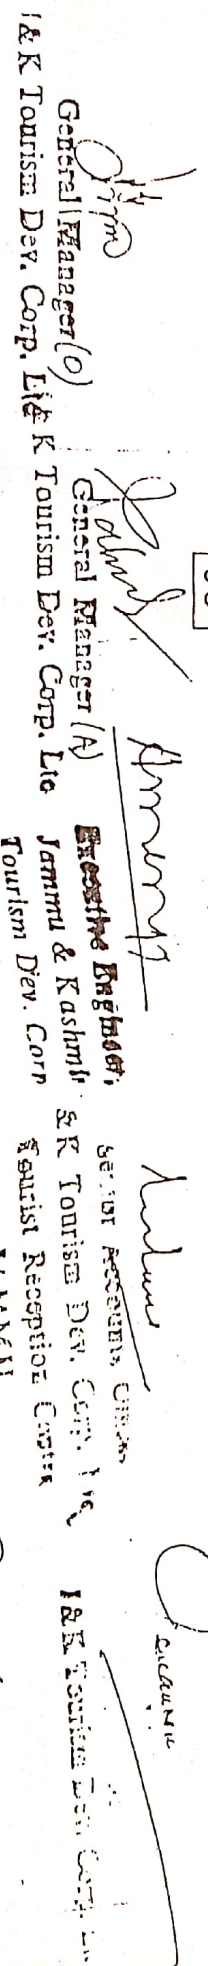 General Manager (O)
J&K Tourism Dev. Corp. Ltd
General Manager (A)
& K Tourism Dev. Corp. Ltd
Executive Engineer,
Jammu & Kashmir
Tourism Dev. Corp
Senior Accounts Officer
&K Tourism Dev. Corp.
Tourist Reception Centre
J&K Tourism Dev. Corp.